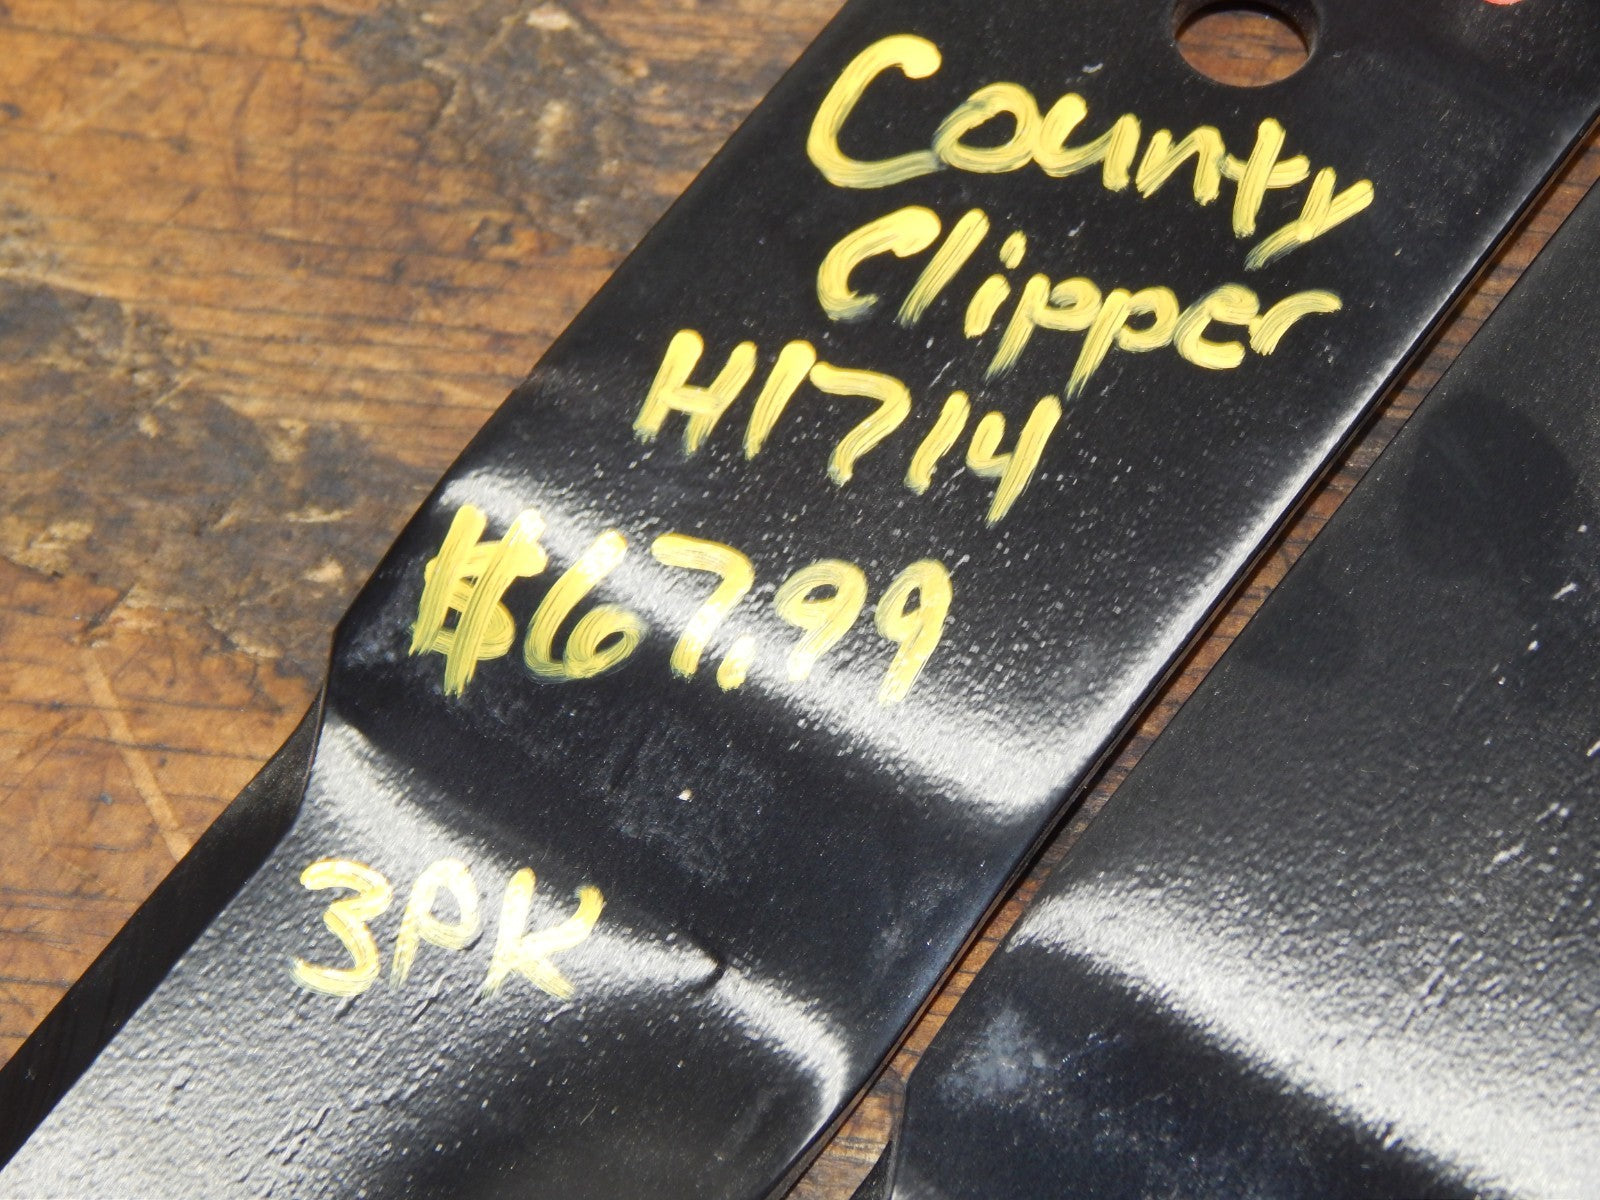 County
Clipper
H1714
$67.99
3PK